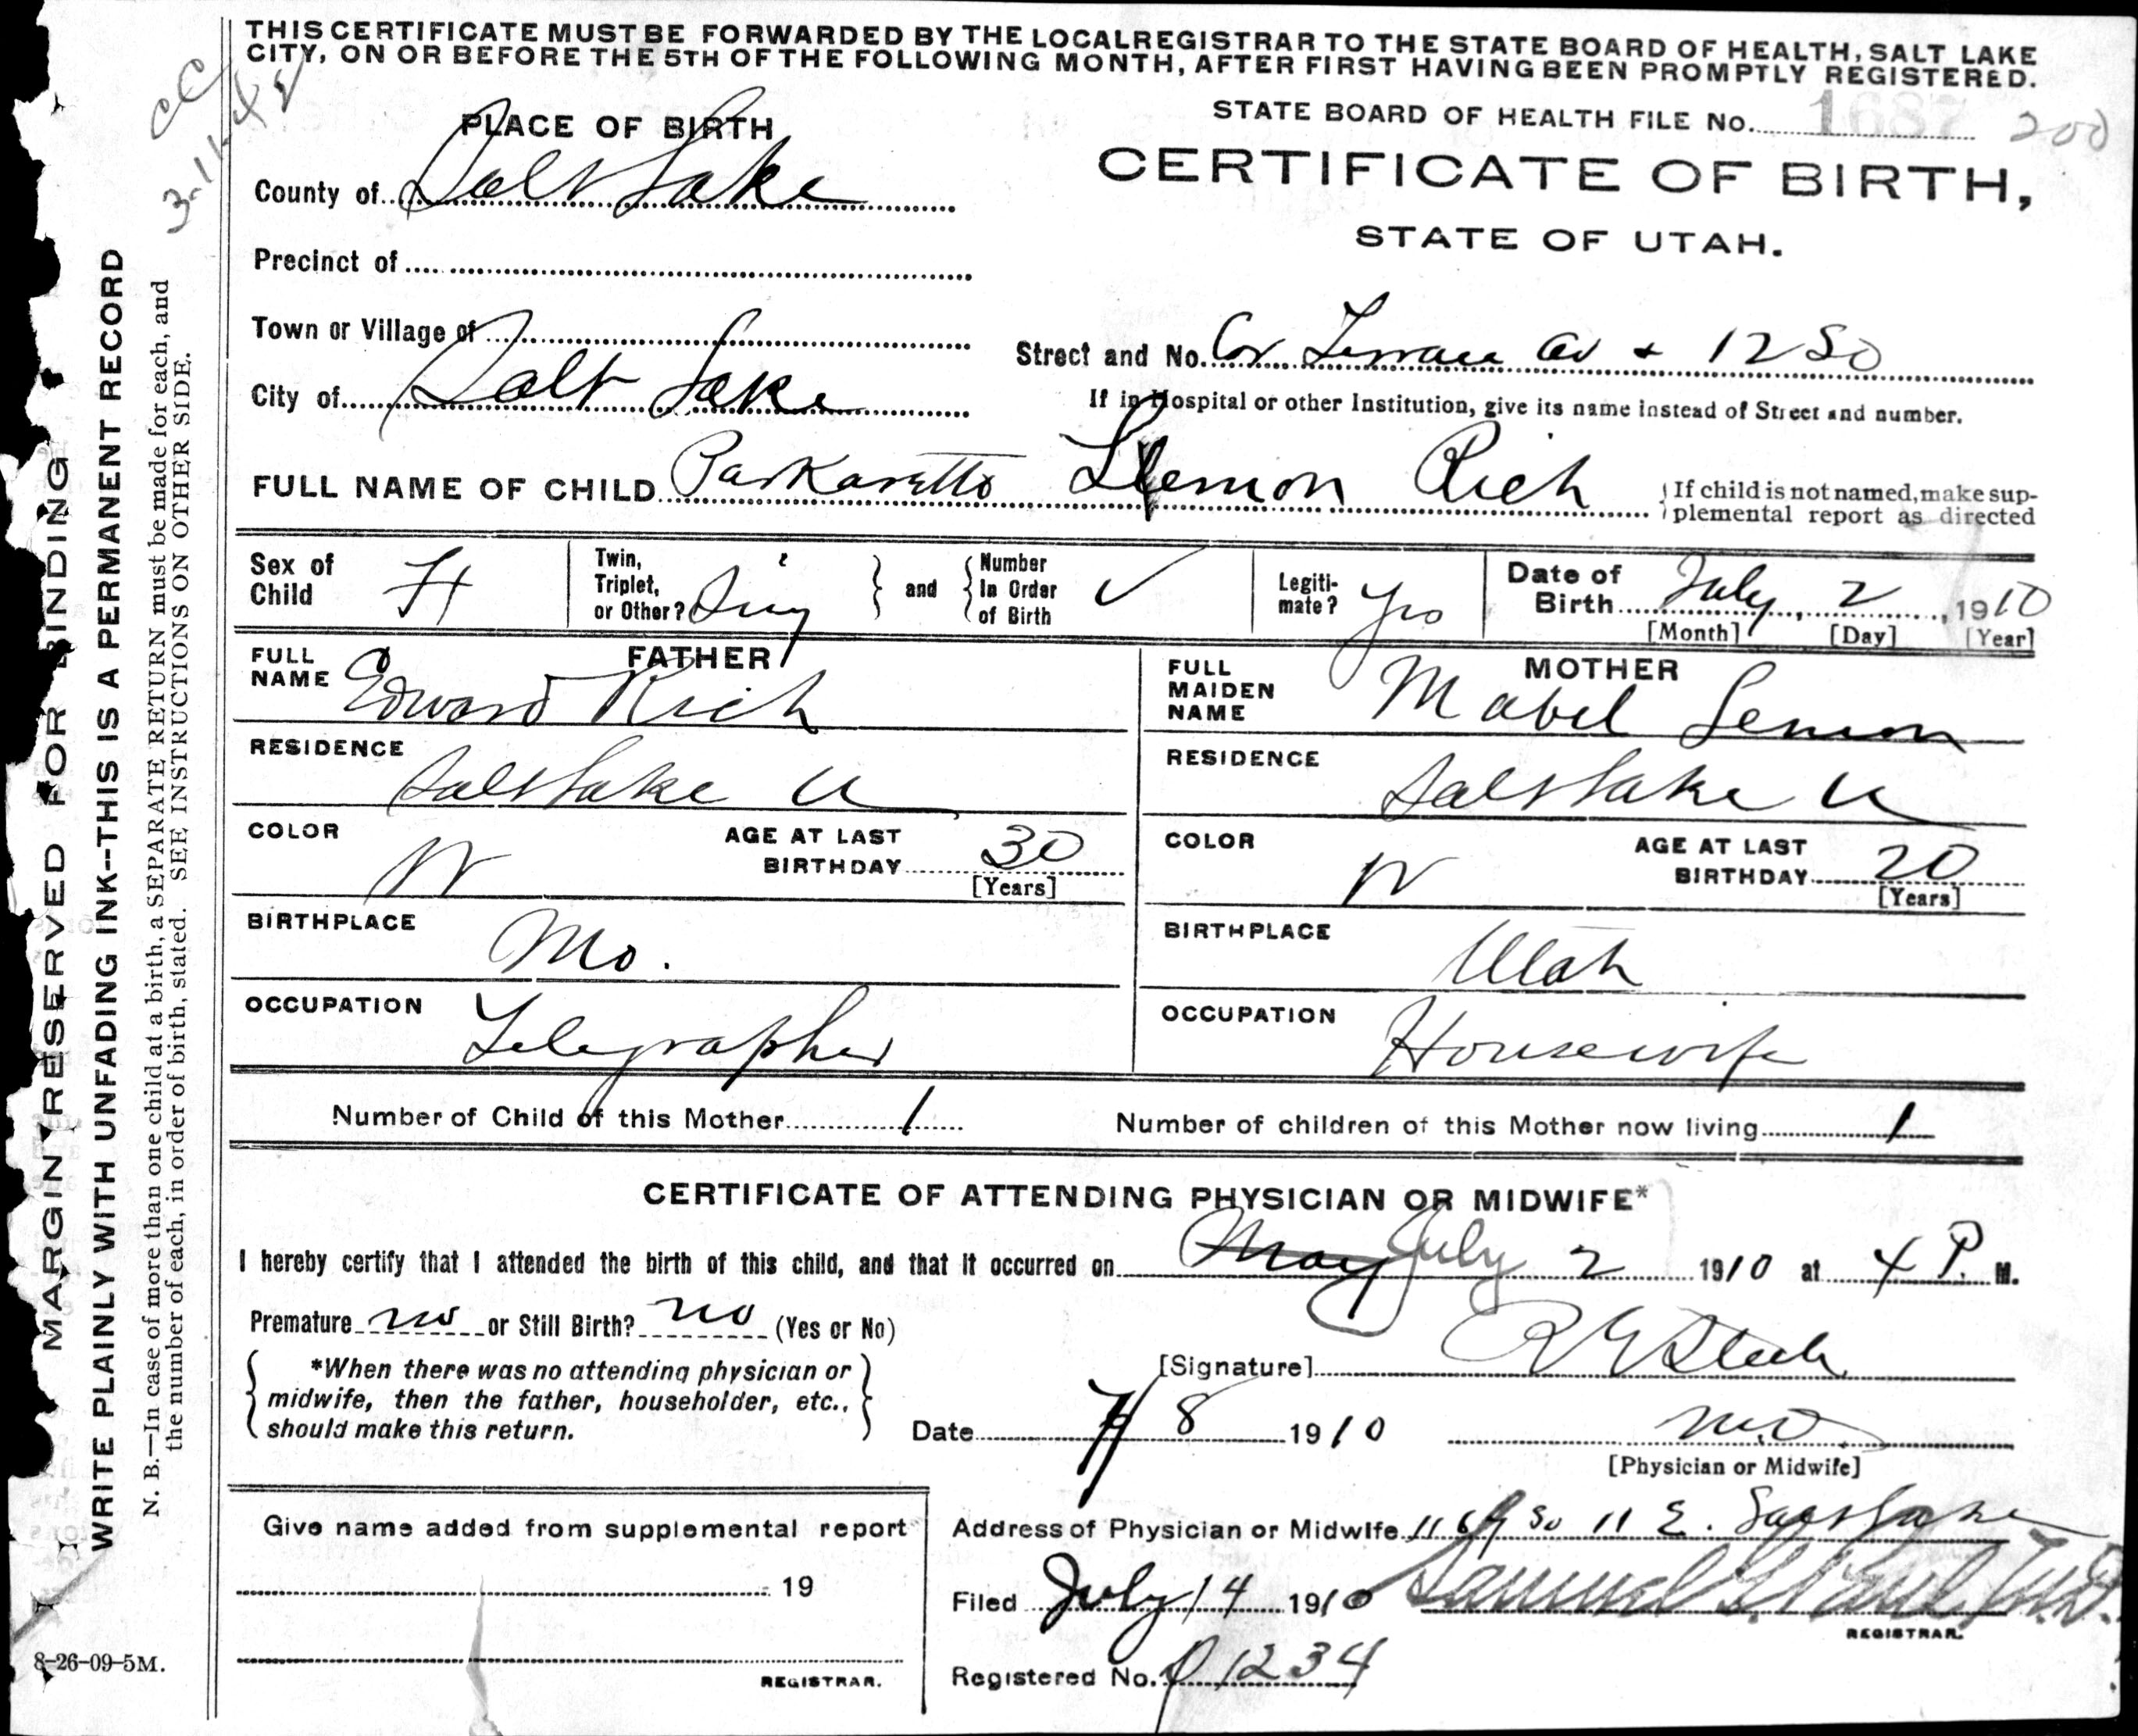 THIS CERTIFICATE MUST BE FORWARDED BY THE LOCAL REGISTRAR TO THE STATE BOARD OF HEALTH, SALT LAKE
CITY, ON OR BEFORE THE 5TH OF THE FOLLOWING MONTH, AFTER FIRST HAVING BEEN PROMPTLY REGISTERED.
CC
3-11-48
PLACE OF BIRTH
STATE BOARD OF HEALTH FILE No. 1687 200
CERTIFICATE OF BIRTH,
STATE OF UTAH.
County of Salt Lake
Precinct of
Town or Village of
Street and No. Cor Terrace av + 12 So
City of Salt Lake
If in Hospital or other Institution, give its name instead of Street and number.
FULL NAME OF CHILD Lemon Rich
If child is not named, make sup-
plemental report as directed
Sex of Child F
Twin, Triplet, or Other? Sing and Number In Order of Birth ✓
Legiti-mate? Yes
Date of Birth July, 2, 1910
[Month] [Day] [Year]
FATHER
FULL NAME Edward Rich
RESIDENCE Salt Lake U
COLOR W
AGE AT LAST BIRTHDAY 30
[Years]
BIRTHPLACE Mo.
OCCUPATION Telegrapher
MOTHER
FULL MAIDEN NAME Mabel Lemon
RESIDENCE Salt Lake U
COLOR W
AGE AT LAST BIRTHDAY 20
[Years]
BIRTHPLACE Utah
OCCUPATION Housewife
Number of Child of this Mother 1
Number of children of this Mother now living 1
CERTIFICATE OF ATTENDING PHYSICIAN OR MIDWIFE*
I hereby certify that I attended the birth of this child, and that it occurred on May July 2 1910 at 4 P. M.
Premature no or Still Birth? no (Yes or No)
*When there was no attending physician or
midwife, then the father, householder, etc.,
should make this return.
[Signature] R E
Date 7/8 1910
M.D.
[Physician or Midwife]
Give name added from supplemental report
19
REGISTRAR.
Address of Physician or Midwife 1169 So 11 E. Salt Lake
Filed July 14 1910 Samuel G. Paul, M.D.
REGISTRAR.
Registered No. 1234
MARGIN RESERVED FOR BINDING
WRITE PLAINLY WITH UNFADING INK--THIS IS A PERMANENT RECORD
N. B.—In case of more than one child at a birth, a SEPARATE RETURN must be made for each, and
the number of each, in order of birth, stated. SEE INSTRUCTIONS ON OTHER SIDE.
8-26-09-5M.